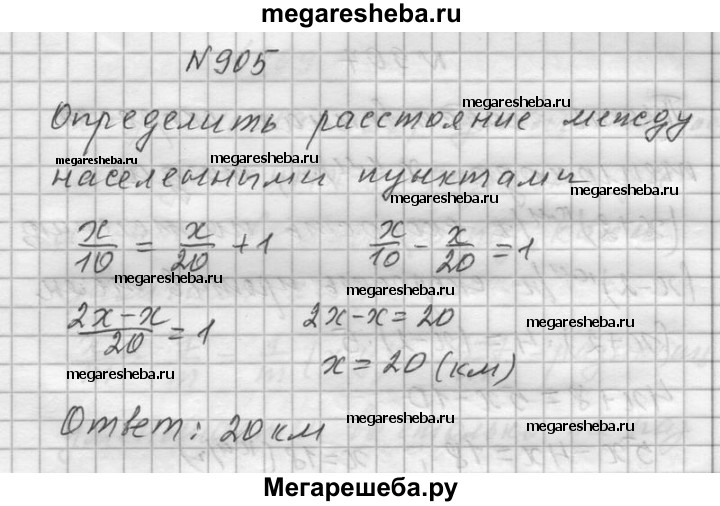 megaresheba.ru
№905
Определить расстояние между
megaresheba.ru
megaresheba.ru
megaresheba.ru
населенными пунктами
megaresheba.ru
x/10 = x/20 + 1    x/10 - x/20 = 1
megaresheba.ru
megaresheba.ru
(2x-x)/20 = 1    2x-x=20
megaresheba.ru
x=20 (км)
megaresheba.ru
megaresheba.ru
Ответ: 20 км
megaresheba.ru
megaresheba.ru
Мегарешеба.ру